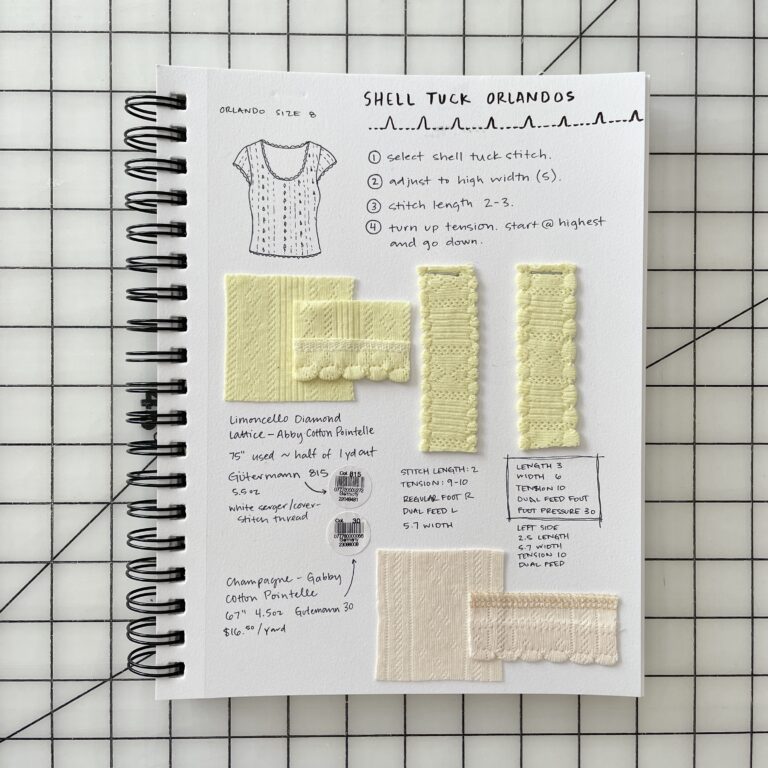 ORLANDO SIZE 8
SHELL TUCK ORLANDOS
1 select shell tuck stitch.
2 adjust to high width (5).
3 stitch length 2-3.
4 turn up tension. start @ highest
and go down.
Limoncello Diamond
Lattice - Abby Cotton Pointelle
75" used ~ half of 1 yd cut
Gütermann 815
5.5oz
white serger/cover-
stitch thread
Col. 815
Col. 30
Champagne - Gabby
Cotton Pointelle
67" 4.5oz Gutemann 30
$16.50/yard
STITCH LENGTH: 2
TENSION: 9-10
REGULAR FOOT R
DUAL FEED L
5.7 WIDTH
LENGTH 3
WIDTH 6
TENSION 10
DUAL FEED FOOT
FOOT PRESSURE 30
LEFT SIDE
2.5 LENGTH
5.7 WIDTH
TENSION 10
DUAL FEED